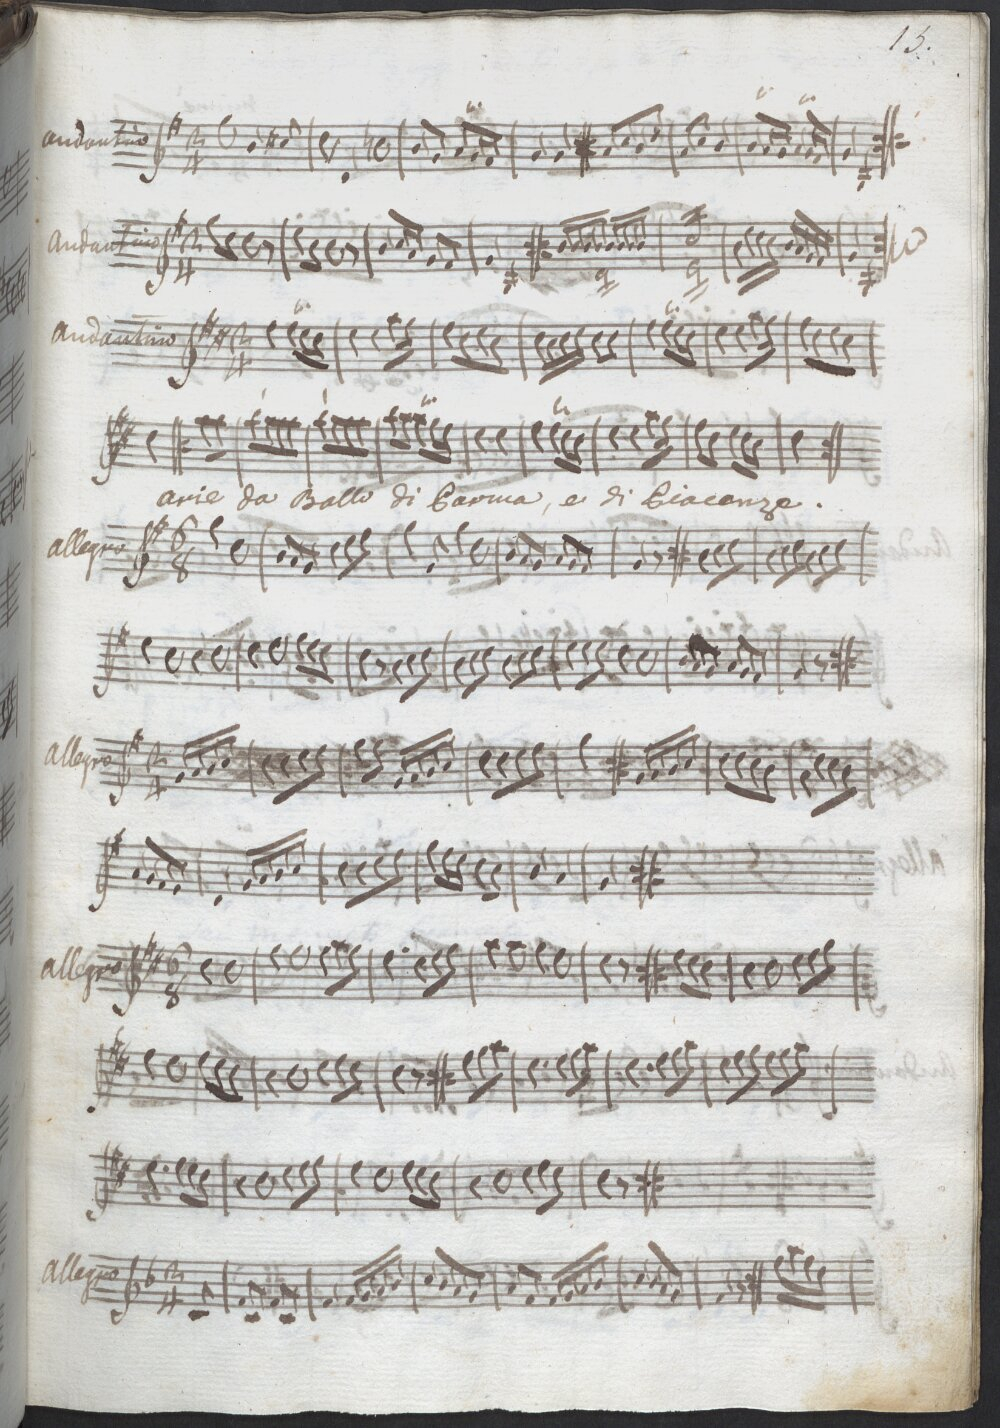 15.
andantino
andantino
andantino
arie da Ballo di Parma, e di Piacenze.
allegro
allegro
allegro
allegro